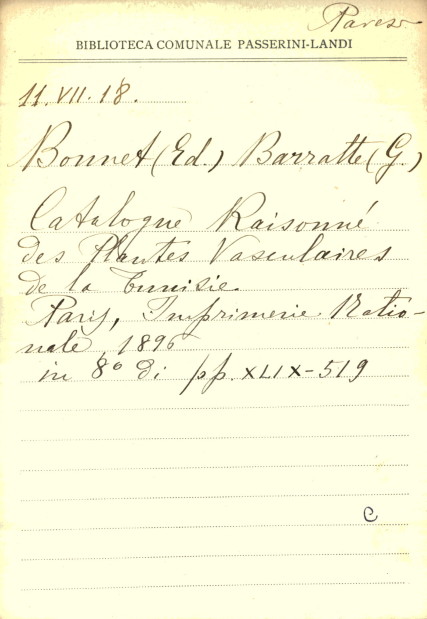 BIBLIOTECA COMUNALE PASSERINI-LANDI
11. VII. 18.
Bonnet (Ed.) Barratte (G.)
Catalogue Raisonné
des Plantes Vasculaires
de la Tunisie.
Paris, Imprimerie Natio-
nale, 1896
in 8° di pp. XLIX-519
C